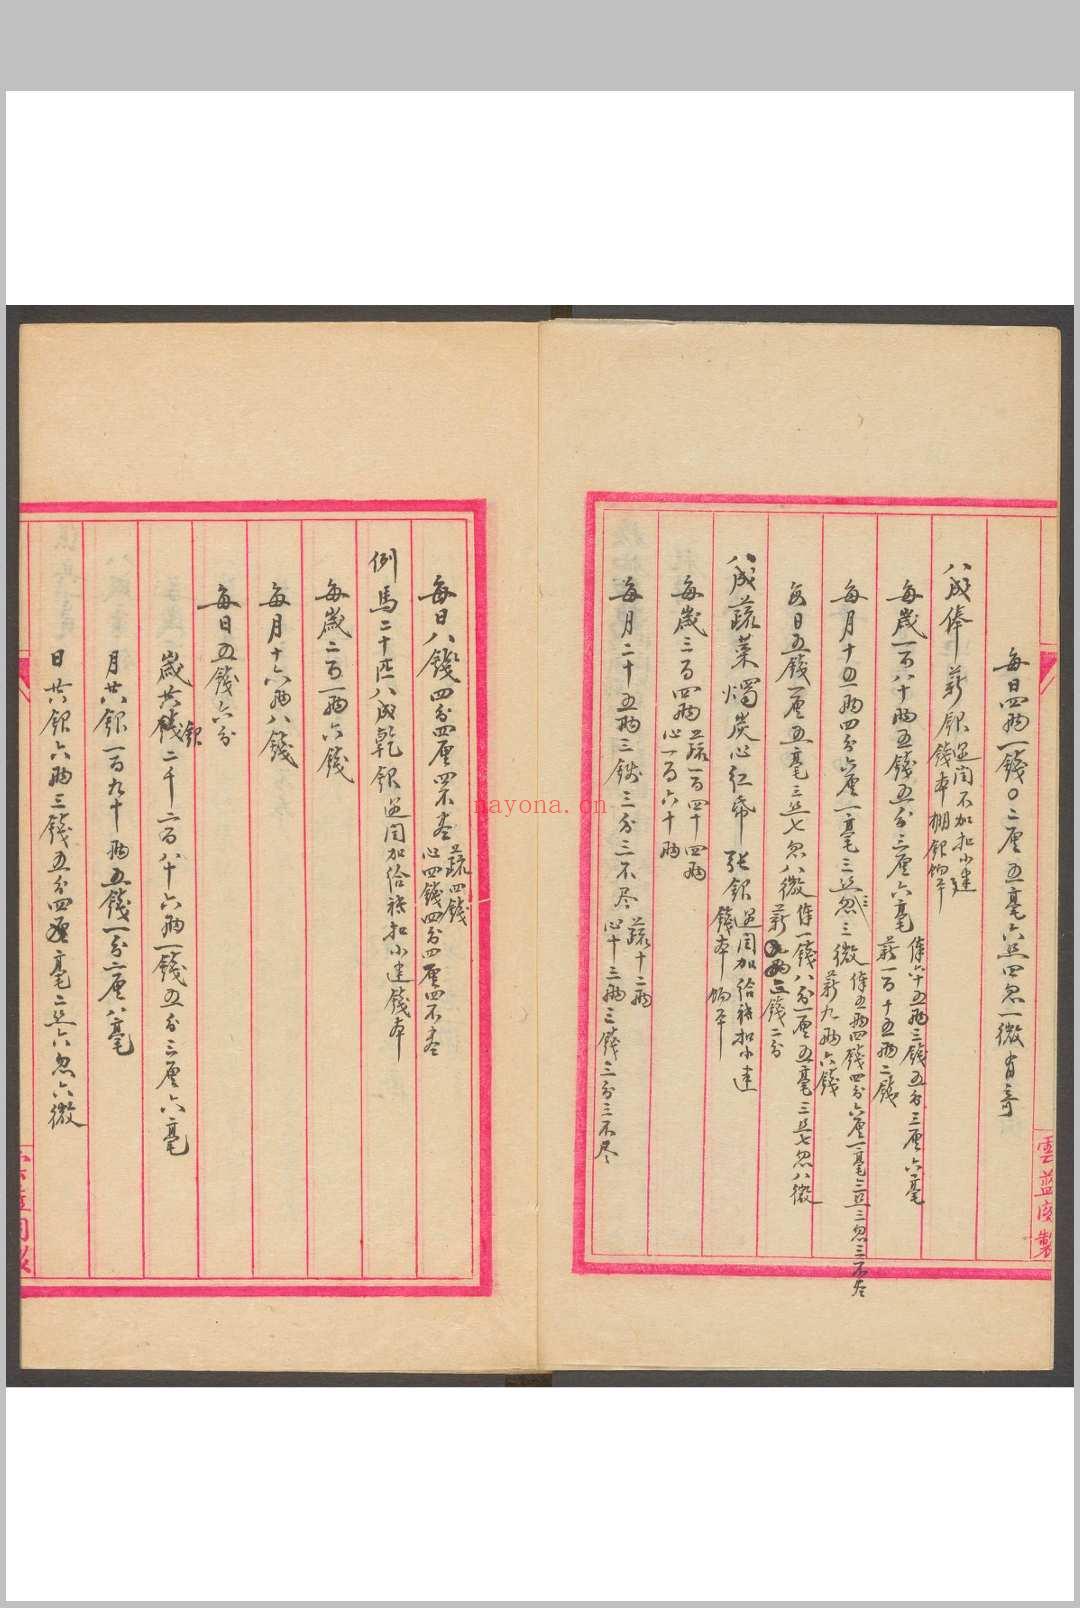 每日四兩一錢〇二厘五毫六絲四忽一微有奇
八成俸薪銀遇閏不加扣小建
錢本棚銀均平
每歲一百八十兩五錢五分三厘六毫
俸六十五兩三錢五分三厘六毫
薪一百十五兩二錢
每月十五兩四分六厘一毫三絲三忽三微
俸五兩四錢四分六厘一毫三絲三忽三不盡
薪九兩六錢
每日五錢一厘五毫三絲七忽八微
俸一錢八分一厘五毫三絲七忽八微
薪三錢二分
八成蔬菜燭炭心紅紙張銀
遇閏加給祇扣小建
錢本均平
每歲三百四兩
蔬一百四十四兩
心一百六十兩
每月二十五兩三錢三分三不尽
蔬十二兩
心十三兩三錢三分三不尽
每日八錢四分四厘四不盡
蔬四錢
心四錢四分四厘四不盡
例馬二十匹八成乾銀遇閏加給祇扣小建錢本
每歲二百一兩六錢
每月十六兩八錢
每日五錢六分
歲共銀二千二百八十六兩一錢五分三厘六毫
月共銀一百九十兩五錢一分二厘八毫
日共銀六兩三錢五分四厘毫二絲六忽六微
雲藍閣製
nayona.cn